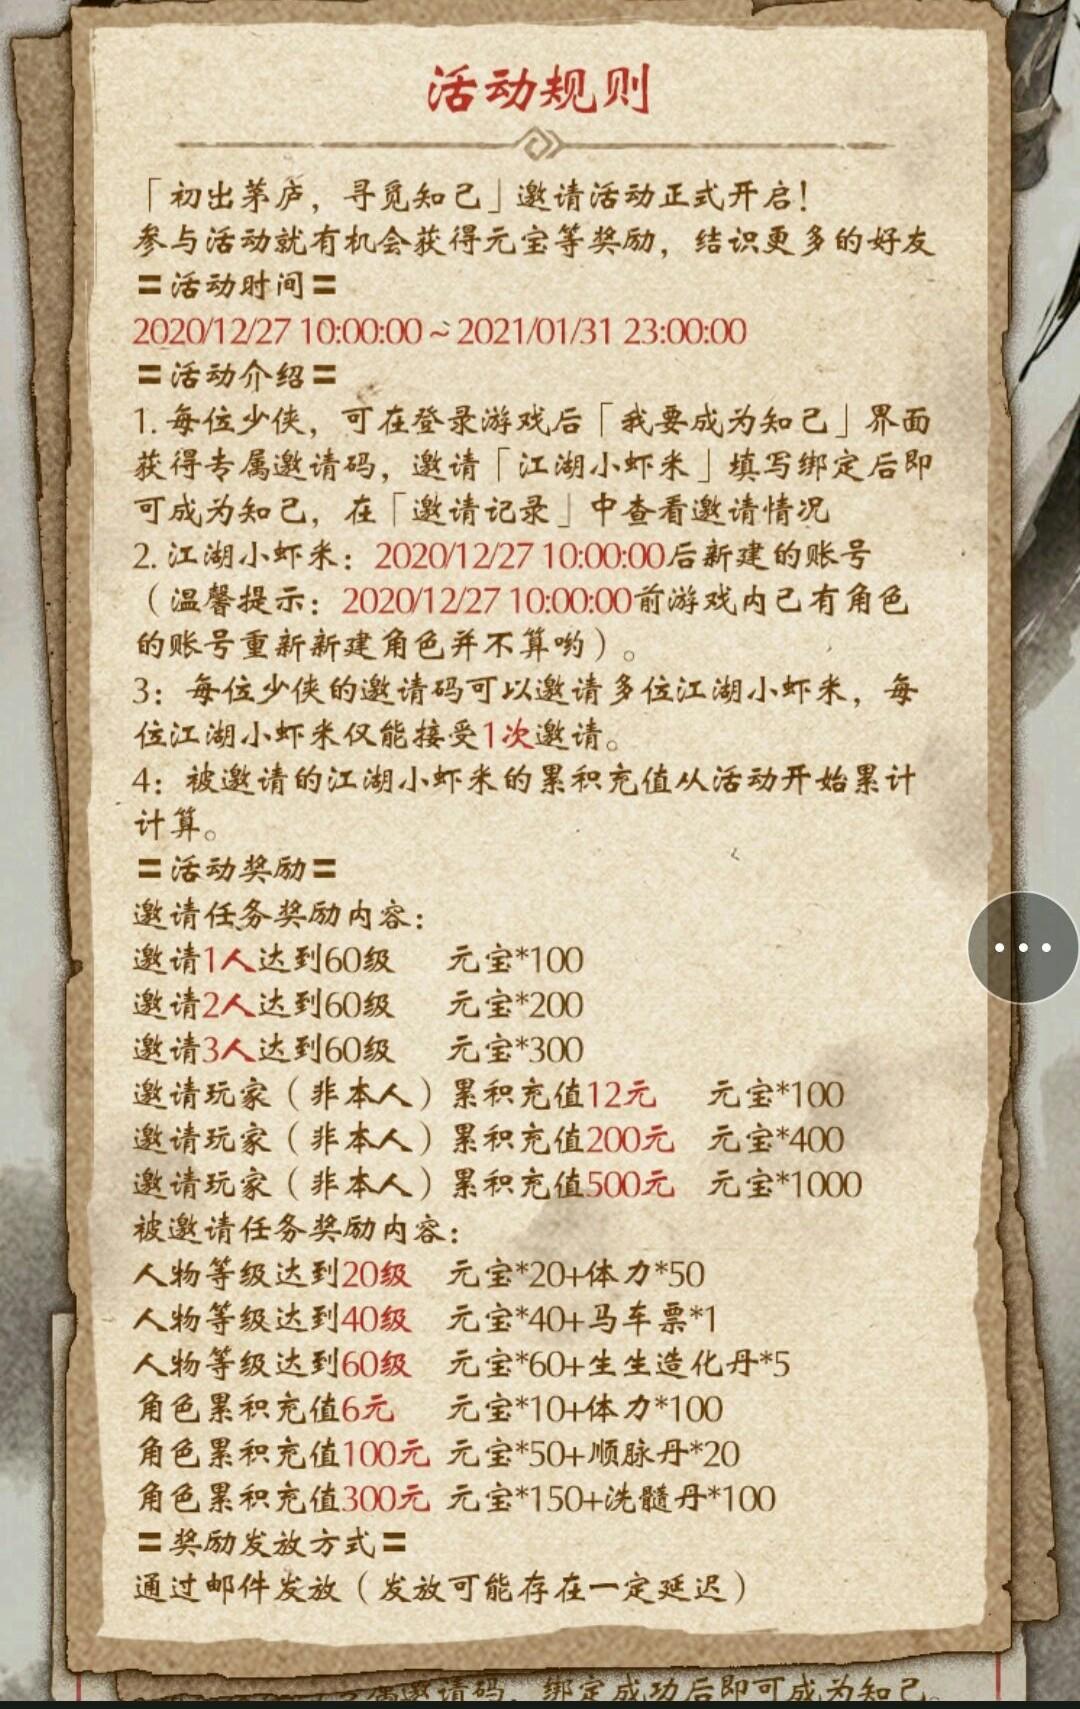 活动规则
「初出茅庐，寻觅知己」邀请活动正式开启！
参与活动就有机会获得元宝等奖励，结识更多的好友
=活动时间=
2020/12/27 10:00:00 ~ 2021/01/31 23:00:00
=活动介绍=
1. 每位少侠，可在登录游戏后「我要成为知己」界面
获得专属邀请码，邀请「江湖小虾米」填写绑定后即
可成为知己，在「邀请记录」中查看邀请情况
2. 江湖小虾米：2020/12/27 10:00:00后新建的账号
（温馨提示：2020/12/27 10:00:00前游戏内已有角色
的账号重新新建角色并不算哟）。
3：每位少侠的邀请码可以邀请多位江湖小虾米，每
位江湖小虾米仅能接受1次邀请。
4：被邀请的江湖小虾米的累积充值从活动开始累计
计算。
=活动奖励=
邀请任务奖励内容：
邀请1人达到60级 元宝*100
邀请2人达到60级 元宝*200
邀请3人达到60级 元宝*300
邀请玩家（非本人）累积充值12元 元宝*100
邀请玩家（非本人）累积充值200元 元宝*400
邀请玩家（非本人）累积充值500元 元宝*1000
被邀请任务奖励内容：
人物等级达到20级 元宝*20+体力*50
人物等级达到40级 元宝*40+马车票*1
人物等级达到60级 元宝*60+生生造化丹*5
角色累积充值6元 元宝*10+体力*100
角色累积充值100元 元宝*50+顺脉丹*20
角色累积充值300元 元宝*150+洗髓丹*100
=奖励发放方式=
通过邮件发放（发放可能存在一定延迟）
属邀请码，绑定成功后即可成为知己。